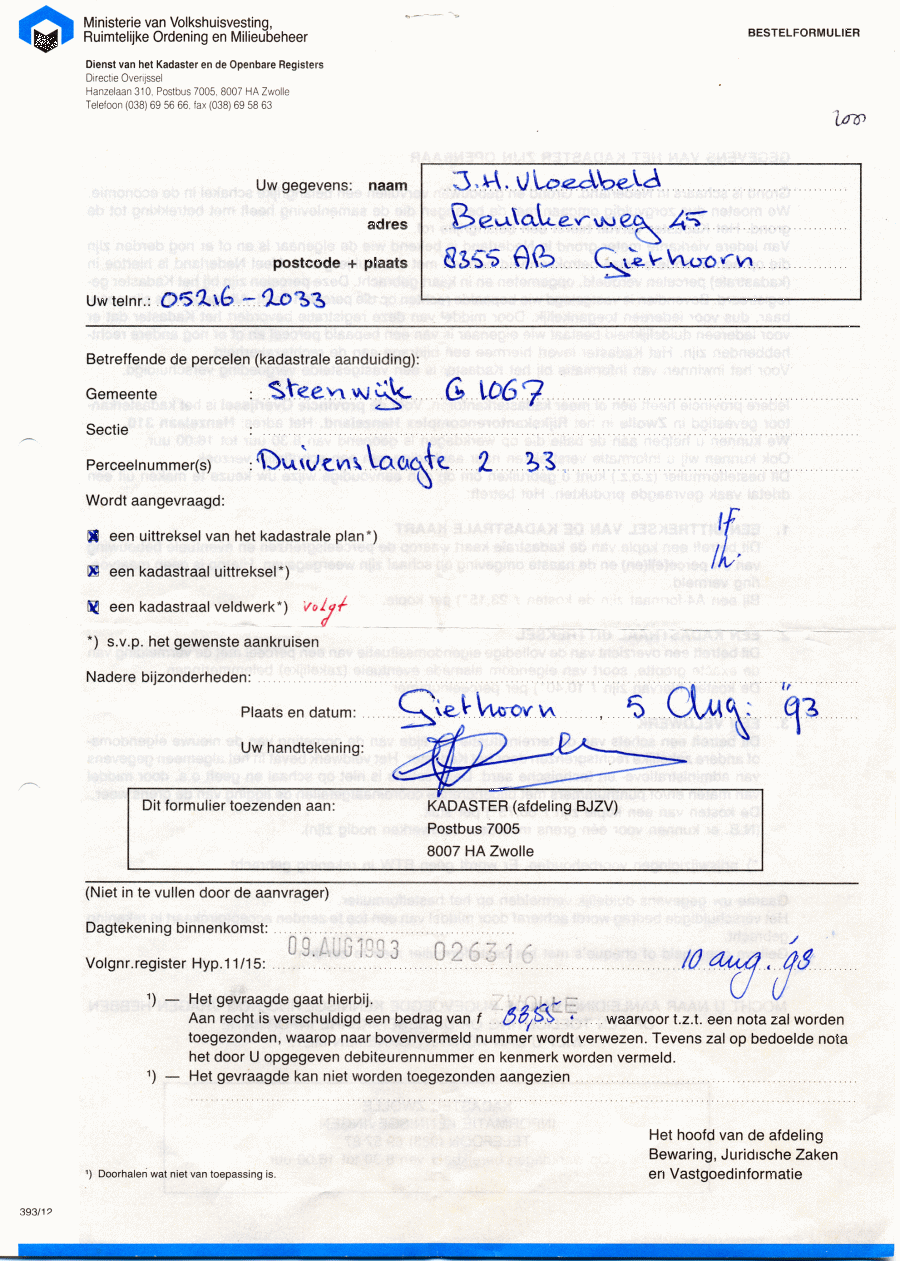 Ministerie van Volkshuisvesting,
Ruimtelijke Ordening en Milieubeheer
BESTELFORMULIER
Dienst van het Kadaster en de Openbare Registers
Directie Overijssel
Hanzelaan 310, Postbus 7005, 8007 HA Zwolle
Telefoon (038) 69 56 66, fax (038) 69 58 63
Uw gegevens: naam J.H. Vloedbeld
adres Beulakerweg 45
postcode + plaats 8355 AB Giethoorn
Uw telnr.: 05216-2033
Betreffende de percelen (kadastrale aanduiding):
Gemeente : Steenwijk G 1067
Sectie
Perceelnummer(s) : Duivenslaagte 2 33
Wordt aangevraagd:
een uittreksel van het kadastrale plan*)
een kadastraal uittreksel*)
een kadastraal veldwerk*) volgt
*) s.v.p. het gewenste aankruisen
Nadere bijzonderheden:
Plaats en datum: Giethoorn, 5 Aug: "93
Uw handtekening:
Dit formulier toezenden aan: KADASTER (afdeling BJZV)
Postbus 7005
8007 HA Zwolle
(Niet in te vullen door de aanvrager)
Dagtekening binnenkomst:
09. AUG 1993 026316
Volgnr.register Hyp.11/15: 10 aug. '93
ZWOLLE
¹) — Het gevraagde gaat hierbij.
Aan recht is verschuldigd een bedrag van f 83,55. waarvoor t.z.t. een nota zal worden
toegezonden, waarop naar bovenvermeld nummer wordt verwezen. Tevens zal op bedoelde nota
het door U opgegeven debiteurennummer en kenmerk worden vermeld.
¹) — Het gevraagde kan niet worden toegezonden aangezien
Het hoofd van de afdeling
Bewaring, Juridische Zaken
en Vastgoedinformatie
¹) Doorhalen wat niet van toepassing is.
393/12